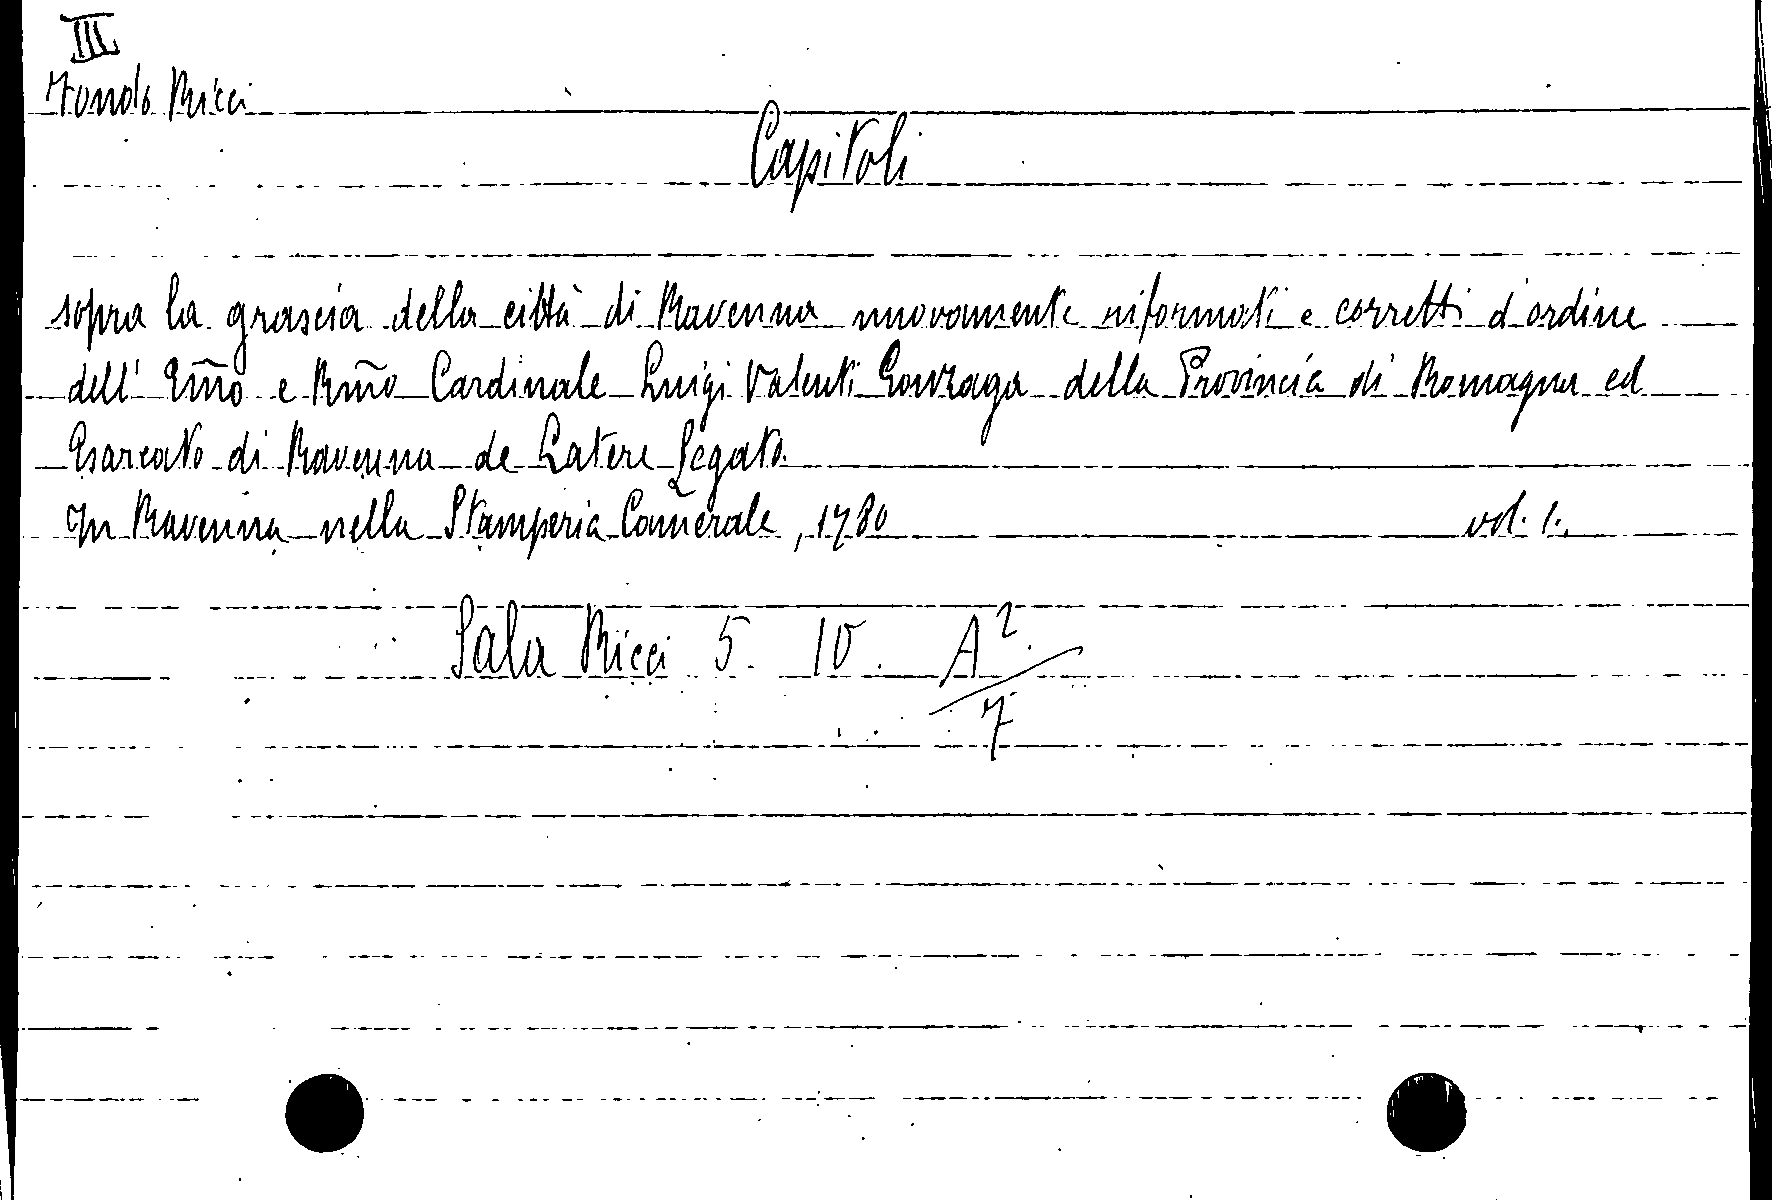 III
Fondo Ricci
Capitoli
sopra la grascia della città di Ravenna nuovamente riformati e corretti d'ordine
dell' Em̃o e Rm̃o Cardinale Luigi Valenti Gonzaga della Provincia di Romagna ed
Esarcato di Ravenna de Latere Legato.
In Ravenna nella Stamperia Camerale, 1780 vol. 1.
Sala Ricci 5. 10. A².
7